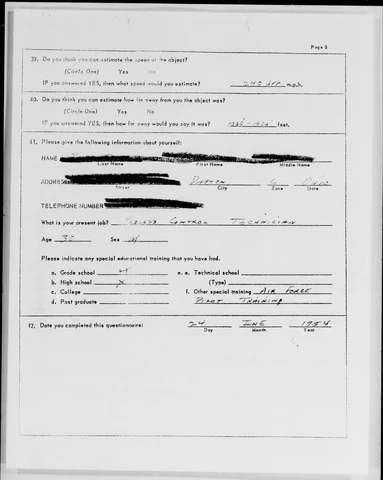 Page 8
39. Do you think you can estimate the speed of the object?
(Circle One) Yes No
IF you answered YES, then what speed would you estimate? m.p.h.
40. Do you think you can estimate how far away from you the object was?
(Circle One) Yes No
IF you answered YES, then how far away would you say it was? feet.
41. Please give the following information about yourself:
NAME
Last Name First Name Middle Name
ADDRESS DAYTON OHIO
Street City Zone State
TELEPHONE NUMBER
What is your present job? CONTROL TECHNICIAN
Age Sex M
Please indicate any special educational training that you have had.
a. Grade school X e. Technical school
b. High school X (Type)
c. College f. Other special training AIR FORCE
d. Post graduate PILOT TRAINING
42. Date you completed this questionnaire: 24 JUNE 1954
Day Month Year